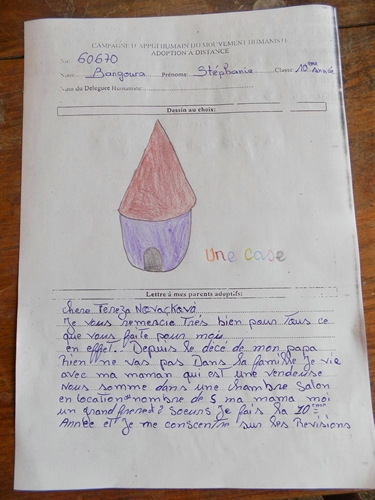 CAMPAGNE D'APPUI HUMAIN DU MOUVEMENT HUMANISTE
ADOPTION À DISTANCE
No: 60670
Nom: Bangoura Prénoms: Stéphanie Classe: 10ème Année
Nom du Délégué Humaniste:
Dessin au choix:
Une case
Lettre à mes parents adoptifs:
Chere Tereza Novačkovà
Je vous remercie Très bien pour Tous ce
que vous faite pour moi
en effet.. Depuis le décè de mon papa
Rien ne vas pas Dans la famille Je vie
avec ma maman qui est une vendeuse
Nous somme dans une chambre Salon
en location nombre de 5 ma mama moi
un grand frere 2 Soeurs Je fais la 10ème
Année et Je me conscentre sur les Révisions